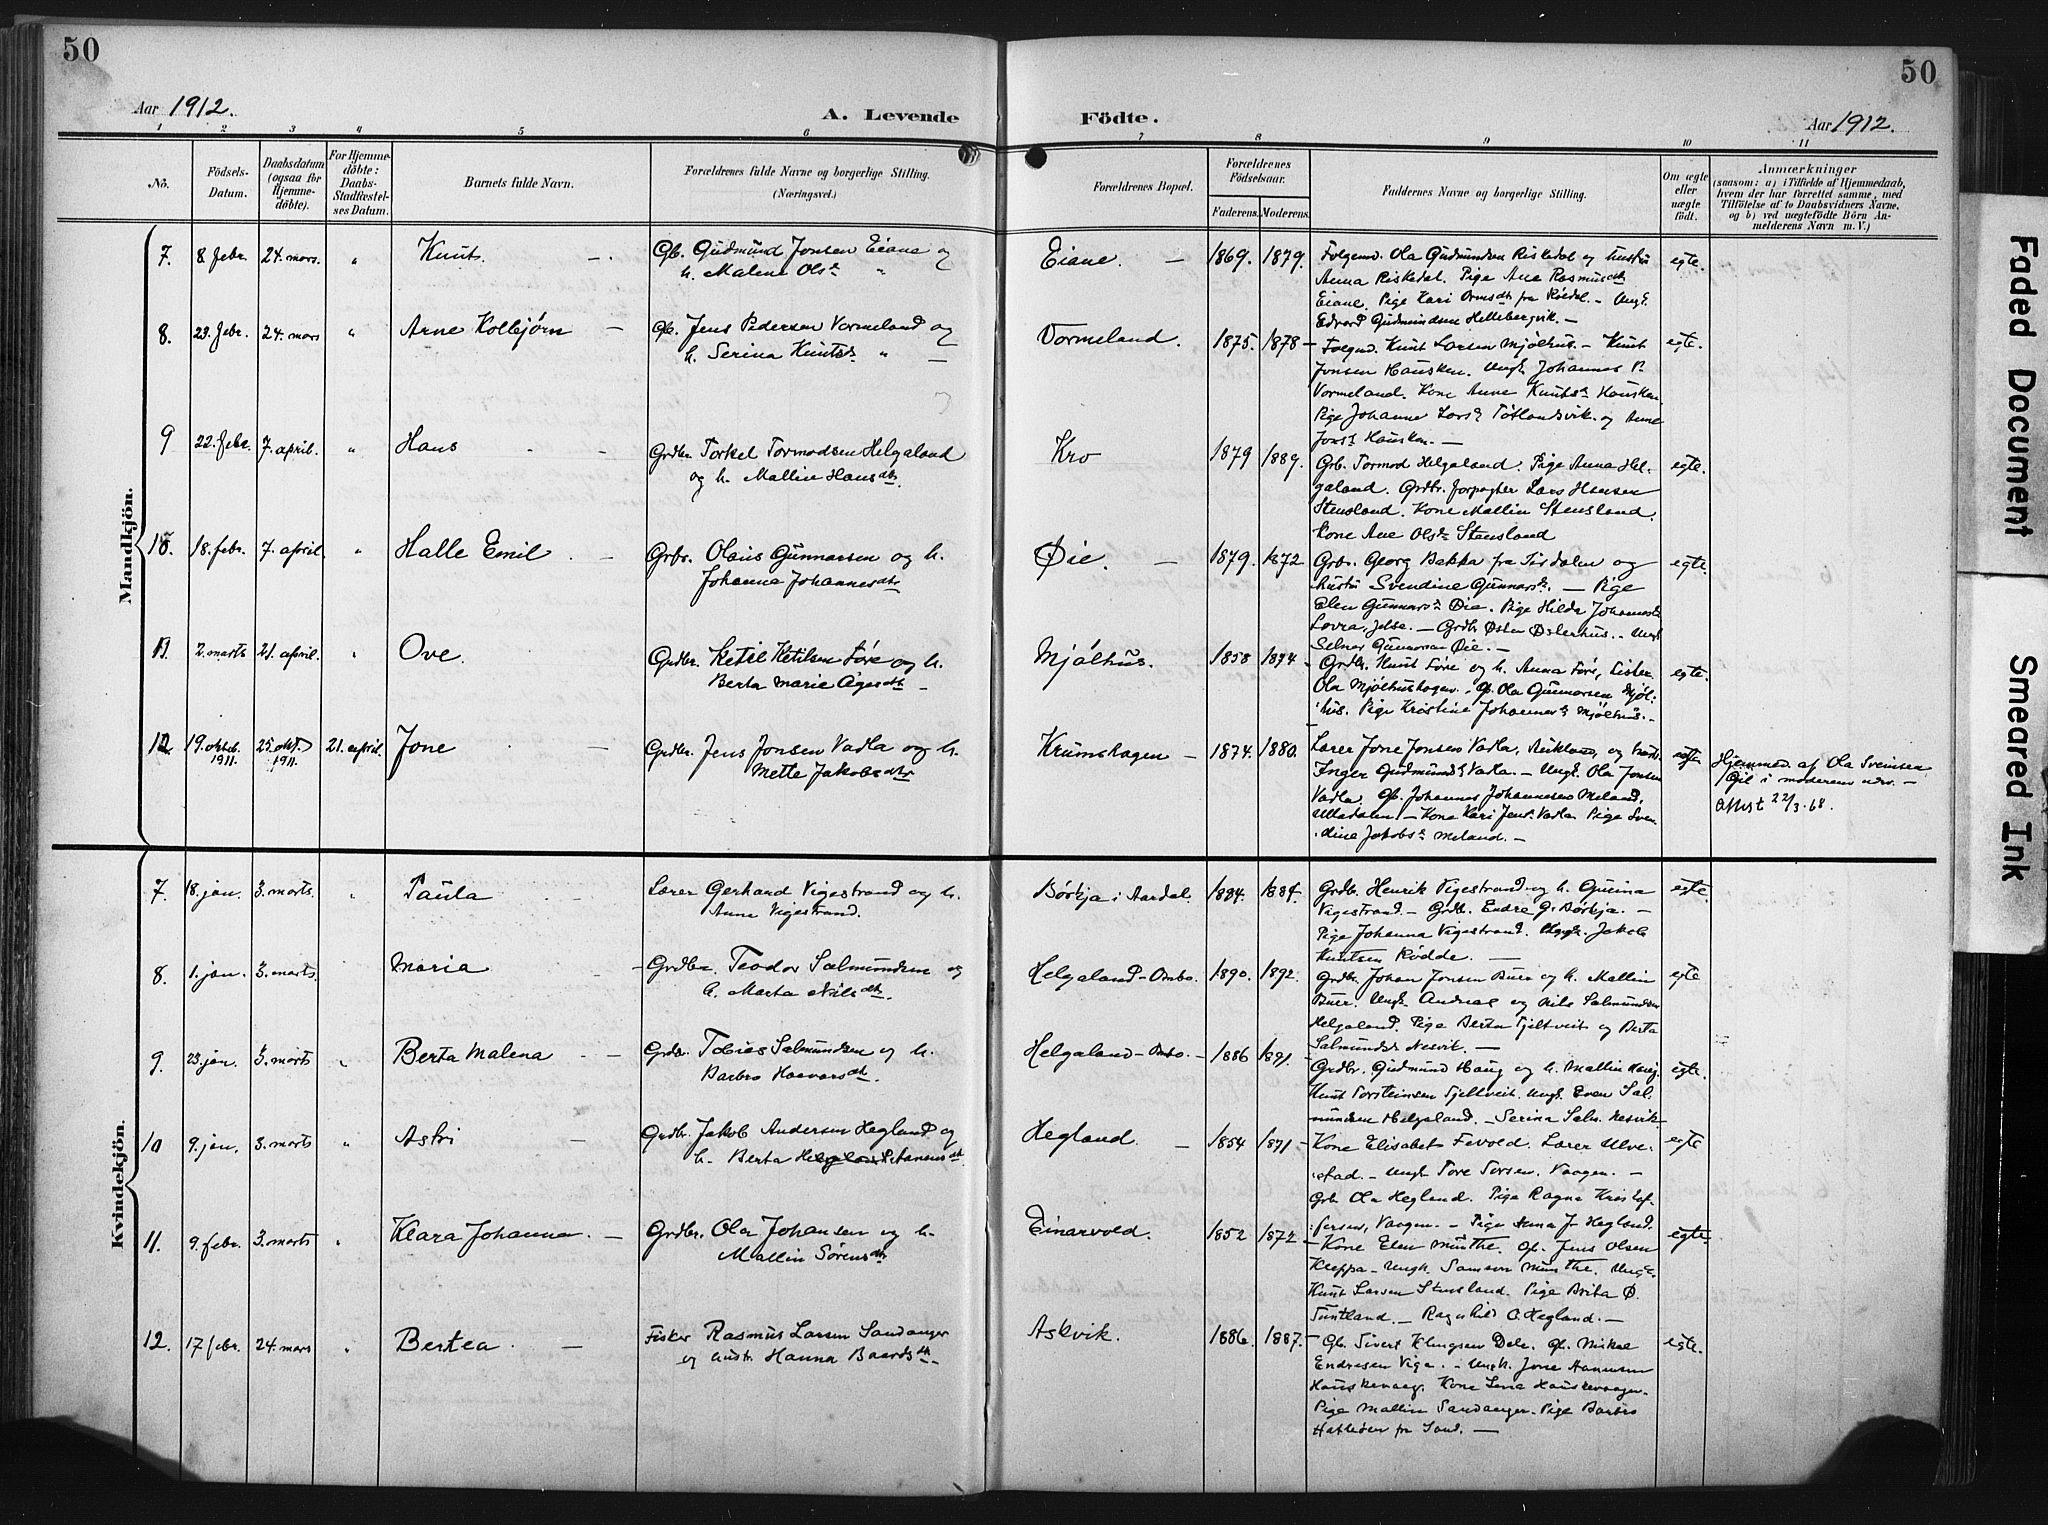 50
50
Aar 1912.
A. Levende
Födte.
Aar 1912.
1 2 3 4 5 6 7 8 9 10 11
No.
Födsels-
Datum.
Daabsdatum
(ogsaa for
Hjemme-
döbte).
For Hjemme-
döbte:
Daabs-
Stadfæstel-
ses Datum.
Barnets fulde Navn.
Forældrenes fulde Navne og borgerlige Stilling.
(Næringsvei.)
Forældrenes Bopæl.
Forældrenes
Födselsaar.
Faderens. Moderens.
Faddernes Navne og borgerlige Stilling.
Om ægte
eller
uægte
födt.
Anmærkninger
(saasom: a) i Tilfælde af Hjemmedaab,
hvem der har forrettet samme, med
Tilföielse af to Daabsvidners Navne,
og b) ved uægtefödte Börn An-
melderens Navn m. V.)
Mandkjön.
7. 8 febr. 24. mars. " Knut. Gb. Gudmund Jonsen Eiane og
h. Malene Olsd. "
Eiane. 1869. 1879.
Folgem. Ola Gudmundsen Riskedal og hustru
Anna Riskedal. Pige Ane Rasmusdtr
Eiane. Pige Kari Ormsdtr fra Röedal. - Ungk.
Edvard Gudmundsen Hellebergvik. -
egte.
8. 23. febr. 24. mars " Arne Kolbjørn Gb. Jens Pedersen Vormeland og
h. Serina Knutsd. "
Vormeland. 1875. 1878
Folgmd. Knut Larsen Mjølhus. - Knut
Jonsen Hausken. Ungk. Johannes P.
Vormeland. Kone Anne Knutsd. Hausken.
Pige Johanne Larsd. Tøtlandsvik. og Anne
Jonsd. Hausken. -
egte.
9 22. febr. 7. april. " Hans Grdbr. Torkel Tormodsen Helgaland
og h. Mallin Hansdtr.
Kro 1879 1889.
Grb. Tormod Helgaland. Pige Anna Hel-
galand. Grdbr. forpagter Lars Hansen
Stensland. Kone Mallin Stensland.
Kone Ane Olsd. Stensland
egte.
10. 18. febr. 7. april " Halle Emil Grbr. Olaus Gunnarsen og h.
Johanna Johannesdtr
Øie. 1879. 1872
Grbr. Georg Bakka fra Suldalen og
hustru Svendine Gunnarsd. - Pige
Elen Gunnarsd. Øie. Pige Hilda Johannesd.
Lovra, Jelse. - Grdb. Østen Østerhus. - Ungk.
Selmer Gunnarsen Øie. -
egte.
11. 2. marts 21. april. " Ove. Grdbr. Ketil Ketilsen Føre og h.
Berta Marie Ågesdtr
Mjølhus. 1858 1874
Grdbr. Knut Føre og h. Anna Føre, Lister.
Ola Mjølhushagen. Gb. Ola Gunnarsen Mjøl-
hus. Pige Kristine Johannesd. Mjølhus. -
egte.
12 19. oktob. 1911. 25. okt. 1911. 21. april. Jone Grdbr. Jens Jonsen Vadla og h.
Mette Jakobsdtr
Krumshagen 1874. 1880.
Lærer Jone Jonsen Vadla,
Inger Gudmundsd. Vadla. - Ungk. Ola Jonsen
Vadla. Gb. Johannes Johannesen Meland,
Ulladalen - Kone Kari Jensd. Vadla Pige Sven-
dine Jakobsd. Meland. -
egte
Hjemmed. af Ola Sveinsen
Gil i moderens nærv. -
Attest 22/3-68.
Kvindekjön.
7. 18. jan. 3. marts. " Paula Lærer Gerhard Vigestrand og h.
Anne Vigestrand.
Børkja i Aardal. 1884. 1884.
Grdb. Henrik Vigestrand og h. Gurina
Vigestrand. - Grdb. Endre G. Børkja. -
Pige Johanna Vigestrand. Ungk. Jakob
Knutsen Rödde. -
egte
8. 1. jan. 3. marts. Maria Grdbr. Teodor Salmundsen og
h. Marta Nilsdtr.
Helgaland-Ombo. 1890. 1892.
Grdbr. Johan Jonsen Buer og h. Mallin
Buer. Ungk. Andreas og Nils Salmundsen
Helgaland. Pige Berta Tjeltveit og Berta
Salmundsd. Nesvik. -
egte
9. 23. jan. 3. marts " Berta Malena Grdbr. Tobias Salmundsen og h.
Barbro Haavarsdtr.
Helgaland-Ombo. 1886 1891.
Grdbr. Gudmund Haug og h. Mallin Haug.
Knut Torsteinsen Tjeltveit. Ungk. Even Sal-
mundsen Helgaland. - Serina Salm. Nesvik -
egte.
10 9. jan. 3. marts " Astri Grdbr. Jakob Andersen Hegland og
h. Berta
Hegland. 1854 1871
Kone Elisabet Fevold. Lærer Ulve-
stad. - Ungk. Tore Torsen, Vaagen. -
Grb. Ola Hegland. Pige Ragna Kristof-
fersen, Vaagen. - Pige Anna J. Hegland.
egte
11. 9. febr. 3. marts " Klara Johanna Grdbr. Ola Johansen og h.
Mallin Sørensdtr
Einarvold. 1852 1872
Kone Elen Munthe. Gb. Jens Olsen
Kleppa - Ungk. Samson Munthe. Ungk.
Knut Larsen Stensland. Pige Brita Ø.
Tuntland. - Ragnhild O. Hegland. -
egte
12. 17 febr. 24. mars " Bertea Fisker Rasmus Larsen Sandanger
og hustr. Hanna Baardsdtr.
Askvik. 1886. 1887.
Gb. Sivert Klungsen Dale. Gb. Mikal
Endresen Vige. - Ungk. Jone Hansen
Hauskevaag. Kone Lena Hauskevaagen.
Pige Mallin Sandanger. Pige Barbro
Hatleøen fra Sand. -
egte.
Faded Document
Smeared Ink